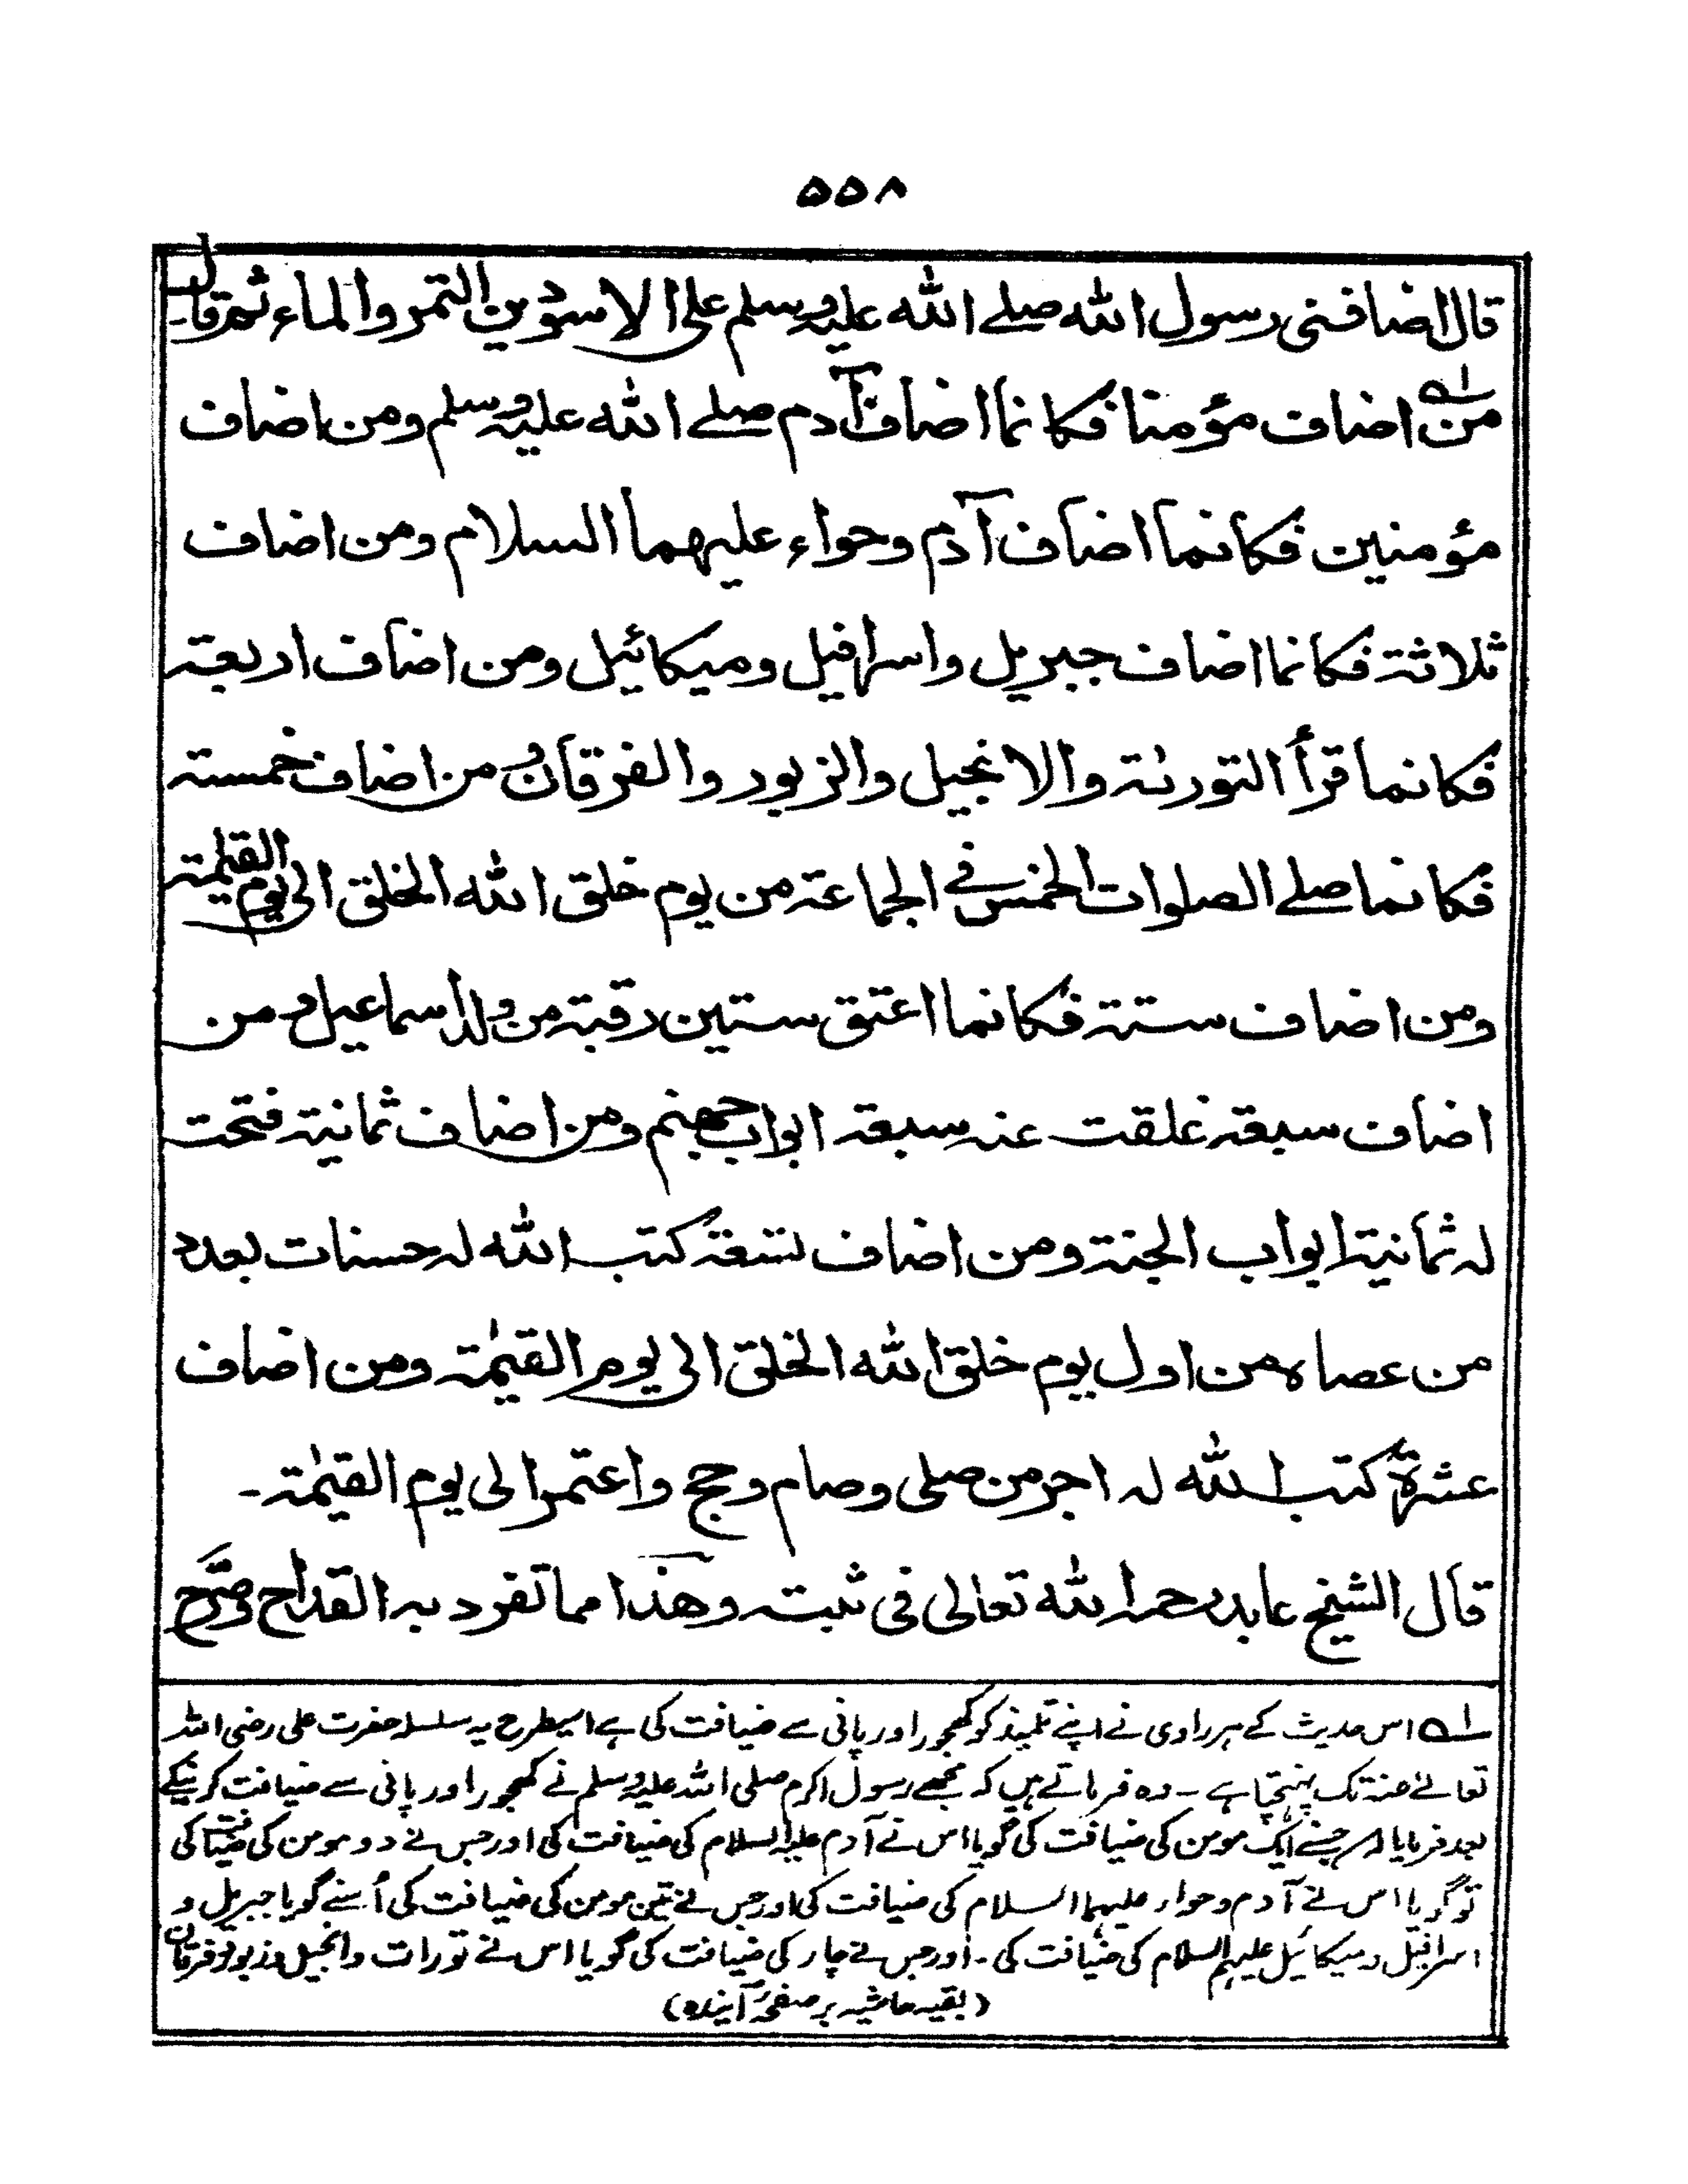 ۵۵۸
قال اضافنى رسول الله صلے الله عليه وسلم على الاسودين التمر والماء ثم قال
من اضاف مؤمنا فكانما اضاف آدم صلے الله عليه وسلم ومن اضاف
مؤمنين فكانما اضاف آدم وحواء عليهما السلام ومن اضاف
ثلاثة فكانما اضاف جبريل واسرافيل وميكائيل ومن اضاف اربعة
فكانما قرأ التورٰىة والانجيل والزبور والفرقان ومن اضاف خمسة
فكانما صلے الصلوات الخمس فے الجماعة من يوم خلق الله الخلق الى يوم القيٰمة
ومن اضاف ستة فكانما اعتق ستين رقبة من ولد اسماعيل ومن
اضاف سبعة غلقت عنه سبعة ابواب جهنم ومن اضاف ثمانية فتحت
له ثمانية ابواب الجنة ومن اضاف تسعة كتب الله له حسنات بعدد
من عصاه من اول يوم خلق الله الخلق الى يوم القيٰمة ومن اضاف
عشرة كتب الله له اجر من صلى وصام وحج واعتمر الى يوم القيٰمة۔
قال الشيخ عابد رحمه الله تعالٰى فى ثبته وهذا مما تفرد به القداح وصرّح
لہ اس حدیث کے ہر راوی نے اپنے تلمیذ کو کھجور اور پانی سے ضیافت کی ہے اسیطرح یہ سلسلہ حضرت علی رضی اللہ
تعالےٰ عنہ تک پہنچتا ہے ۔ وہ فرماتے ہیں کہ مجھے رسول اکرم صلی اللہ علیہ وسلم نے کھجور اور پانی سے ضیافت کرنیکے
بعد فرمایا کہ جسنے ایک مومن کی ضیافت کی گویا اس نے آدم علیہ السلام کی ضیافت کی اور جس نے دو مومن کی ضیافت کی
تو گویا اس نے آدم و حواء علیہما السلام کی ضیافت کی اور جس نے تین مومن کی ضیافت کی اُسنے گویا جبریل و
اسرافیل و میکائیل علیہم السلام کی ضیافت کی ۔ اور جس نے چار کی ضیافت کی گویا اس نے تورات و انجیل و زبور و فرقان
(بقیہ حاشیہ بر صفحۂ آیندہ)